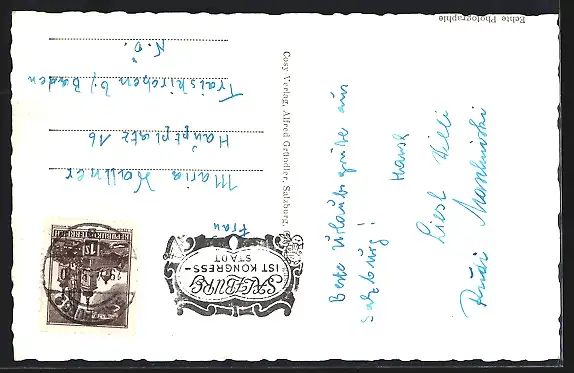 Echte Photographie
Beste Urlaubsgrüße aus
Salzburg!
Hansl
Liesl Willi
Rudi
Cosy-Verlag, Alfred Gründler, Salzburg,
SALZBURG
IST KONGRESS-
STADT
REPUBLIK ÖSTERREICH
S1
Frau
Maria Wallner
Hauptplatz 16
Traiskirchen b/Baden
N.Ö.